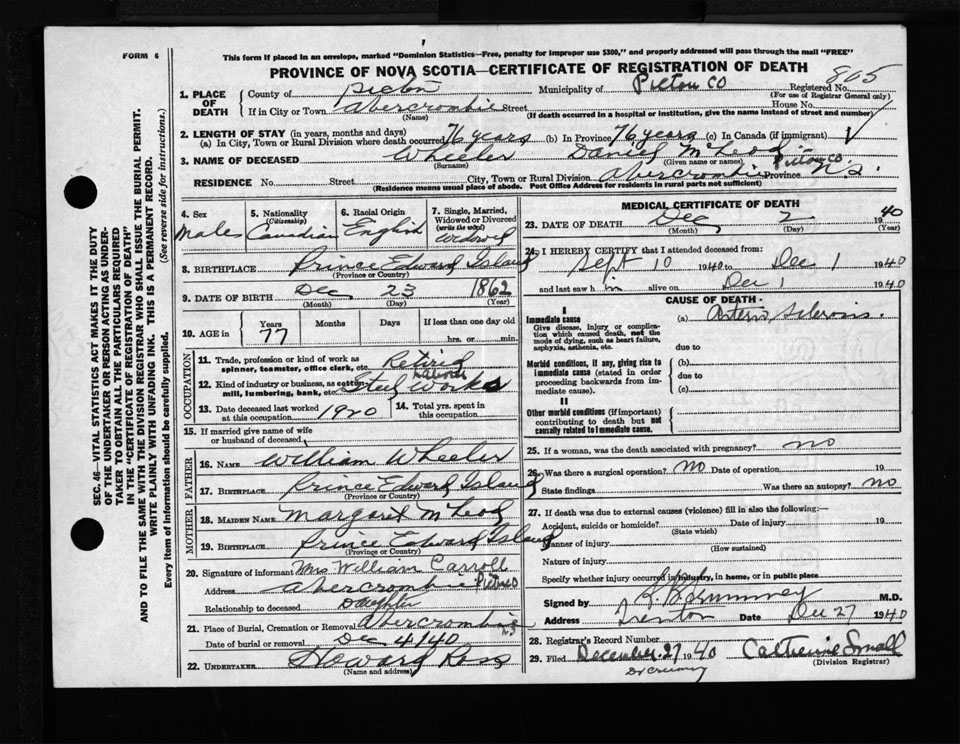 FORM 6
This form if placed in an envelope, marked "Dominion Statistics—Free, penalty for improper use $300," and properly addressed will pass through the mail "FREE"
PROVINCE OF NOVA SCOTIA—CERTIFICATE OF REGISTRATION OF DEATH
1. PLACE OF DEATH County of Pictou Municipality of Pictou Co Registered No. 805
(For use of Registrar General only)
If in City or Town Abercrombie Street House No.
(Name) (If death occurred in a hospital or institution, give the name instead of street and number)
2. LENGTH OF STAY (in years, months and days)
(a) In City, Town or Rural Division where death occurred 76 years (b) In Province 76 years (c) In Canada (if immigrant)
3. NAME OF DECEASED Wheeler Daniel McLeod
(Surname) (Given name or names)
RESIDENCE No. Street City, Town or Rural Division Abercrombie Pictou Co. Province N.S.
(Residence means usual place of abode. Post Office Address for residents in rural parts not sufficient)
4. Sex Male
5. Nationality (Citizenship) Canadian
6. Racial Origin English
7. Single, Married, Widowed or Divorced (write the word) Widowed
8. BIRTHPLACE Prince Edward Island
(Province or Country)
9. DATE OF BIRTH Dec 23 1862
(Month) (Day) (Year)
10. AGE in Years 77 Months Days If less than one day old hrs. or min.
OCCUPATION
11. Trade, profession or kind of work as spinner, teamster, office clerk, etc. Retired
12. Kind of industry or business, as cotton mill, lumbering, bank, etc. Steel Works
13. Date deceased last worked at this occupation 1920
14. Total yrs. spent in this occupation
15. If married give name of wife or husband of deceased
FATHER
16. NAME William Wheeler
17. BIRTHPLACE Prince Edward Island
(Province or Country)
MOTHER
18. MAIDEN NAME Margaret McLeod
19. BIRTHPLACE Prince Edward Island
(Province or Country)
20. Signature of informant Mrs William Carroll
Address Abercrombie Pictou Co
Relationship to deceased Daughter
21. Place of Burial, Cremation or Removal Abercrombie N.S.
Date of burial or removal Dec 4 1940
22. UNDERTAKER Howard Ross
(Name and address)
MEDICAL CERTIFICATE OF DEATH
23. DATE OF DEATH Dec 2 1940
(Month) (Day) (Year)
24. I HEREBY CERTIFY that I attended deceased from:
Sept 10 1940 to Dec 1 1940
and last saw him alive on Dec 1 1940
CAUSE OF DEATH
I
Immediate cause (a) Arterio Sclerosis.
Give disease, injury or complication which caused death, not the mode of dying, such as heart failure, asphyxia, asthenia, etc.
due to
Morbid conditions, if any, giving rise to immediate cause (stated in order proceeding backwards from immediate cause).
(b)
due to
(c)
II
Other morbid conditions (if important) contributing to death but not causally related to immediate cause.
25. If a woman, was the death associated with pregnancy? no
26. Was there a surgical operation? no Date of operation 19
State findings Was there an autopsy? no
27. If death was due to external causes (violence) fill in also the following:—
Accident, suicide or homicide? Date of injury 19
(State which)
Manner of injury
(How sustained)
Nature of injury
Specify whether injury occurred in industry, in home, or in public place
Signed by M.D.
Address Trenton Date Dec 27 1940
28. Registrar's Record Number
29. Filed December 27 1940 Catherine Small
(Division Registrar)
SEC. 46—VITAL STATISTICS ACT MAKES IT THE DUTY OF THE UNDERTAKER OR PERSON ACTING AS UNDERTAKER TO OBTAIN ALL THE PARTICULARS REQUIRED IN THE "CERTIFICATE OF REGISTRATION OF DEATH" AND TO FILE THE SAME WITH THE DIVISION REGISTRAR WHO SHALL ISSUE THE BURIAL PERMIT.
WRITE PLAINLY WITH UNFADING INK. THIS IS A PERMANENT RECORD.
Every item of information should be carefully supplied. (See reverse side for instructions.)